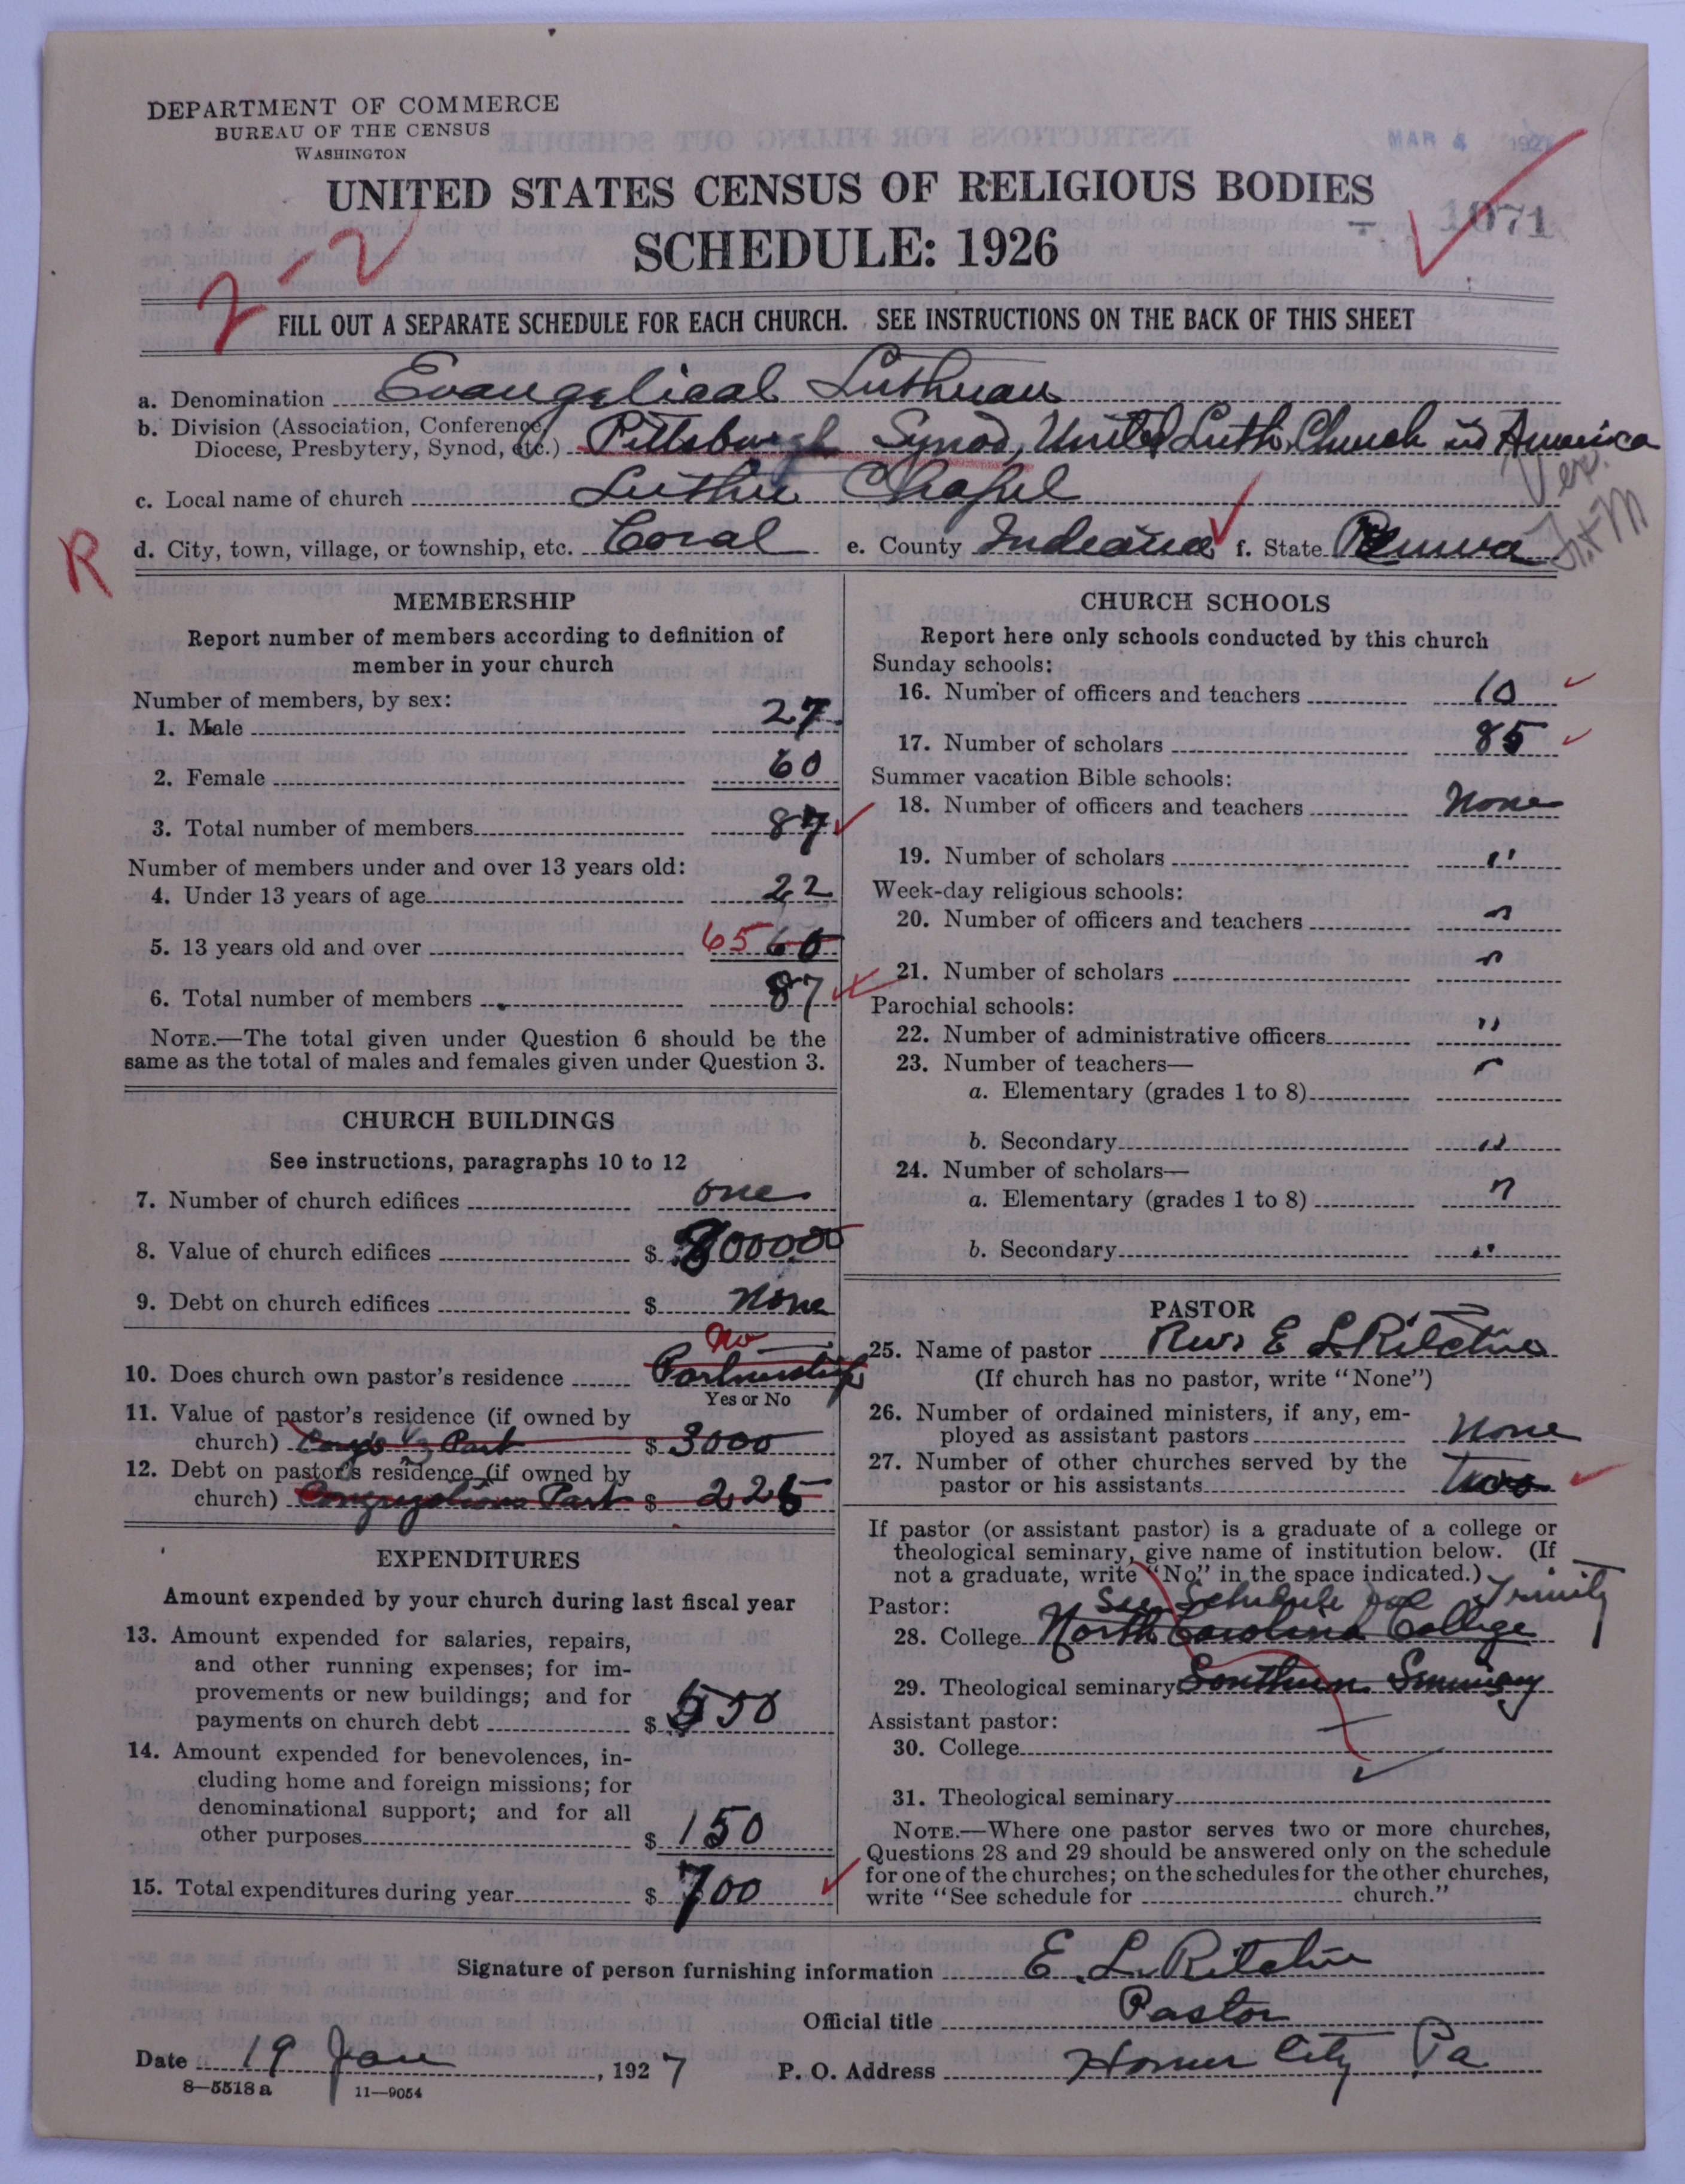 DEPARTMENT OF COMMERCE
BUREAU OF THE CENSUS
WASHINGTON
MAR 4 192
UNITED STATES CENSUS OF RELIGIOUS BODIES
SCHEDULE: 1926
1071
2-2
FILL OUT A SEPARATE SCHEDULE FOR EACH CHURCH. SEE INSTRUCTIONS ON THE BACK OF THIS SHEET
a. Denomination Evangelical Lutheran
b. Division (Association, Conference,
Diocese, Presbytery, Synod, etc.) Pittsburgh Synod, United Luth. Church in America
c. Local name of church Luther Chapel
Ver.
R
d. City, town, village, or township, etc. Coral e. County Indiana f. State Penna
MEMBERSHIP
Report number of members according to definition of
member in your church
Number of members, by sex:
1. Male 27
2. Female 60
3. Total number of members 87
Number of members under and over 13 years old:
4. Under 13 years of age 22
5. 13 years old and over 65 60
6. Total number of members 87
NOTE.—The total given under Question 6 should be the
same as the total of males and females given under Question 3.
CHURCH BUILDINGS
See instructions, paragraphs 10 to 12
7. Number of church edifices one
8. Value of church edifices $ 800000
9. Debt on church edifices $ None
No
10. Does church own pastor's residence Partnership
Yes or No
11. Value of pastor's residence (if owned by
church) Cong's Part $ 3000
12. Debt on pastor's residence (if owned by
church) Congregations Part $ 225
EXPENDITURES
Amount expended by your church during last fiscal year
13. Amount expended for salaries, repairs,
and other running expenses; for im-
provements or new buildings; and for
payments on church debt $ 550
14. Amount expended for benevolences, in-
cluding home and foreign missions; for
denominational support; and for all
other purposes $ 150
15. Total expenditures during year $ 700
CHURCH SCHOOLS
Report here only schools conducted by this church
Sunday schools:
16. Number of officers and teachers 10
17. Number of scholars 85
Summer vacation Bible schools:
18. Number of officers and teachers None
19. Number of scholars "
Week-day religious schools:
20. Number of officers and teachers "
21. Number of scholars "
Parochial schools:
22. Number of administrative officers "
23. Number of teachers—
a. Elementary (grades 1 to 8) "
b. Secondary "
24. Number of scholars—
a. Elementary (grades 1 to 8) "
b. Secondary "
PASTOR
25. Name of pastor Rev E L Ritchie
(If church has no pastor, write "None")
26. Number of ordained ministers, if any, em-
ployed as assistant pastors None
27. Number of other churches served by the
pastor or his assistants two
If pastor (or assistant pastor) is a graduate of a college or
theological seminary, give name of institution below. (If
not a graduate, write "No" in the space indicated.)
Pastor: See Schedule for Trinity
28. College North Carolina College
29. Theological seminary Southern Seminary
Assistant pastor:
30. College
31. Theological seminary
NOTE.—Where one pastor serves two or more churches,
Questions 28 and 29 should be answered only on the schedule
for one of the churches; on the schedules for the other churches,
write "See schedule for church."
Signature of person furnishing information E. L. Ritchie
Official title Pastor
Date 19 Jan, 1927 P. O. Address Homer City Pa
8—5518 a 11—9054